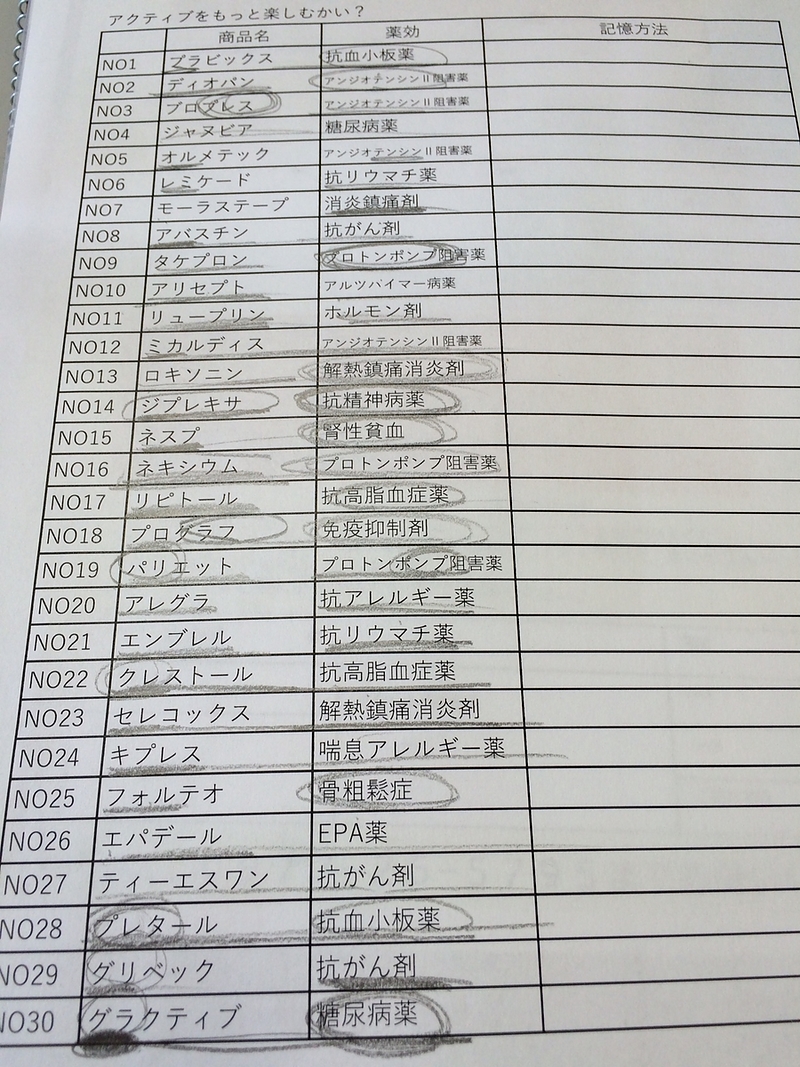 アクティブをもっと楽しむかい？
商品名 薬効 記憶方法
NO1 プラビックス 抗血小板薬
NO2 ディオバン アンジオテンシンⅡ阻害薬
NO3 ブロプレス アンジオテンシンⅡ阻害薬
NO4 ジャヌビア 糖尿病薬
NO5 オルメテック アンジオテンシンⅡ阻害薬
NO6 レミケード 抗リウマチ薬
NO7 モーラステープ 消炎鎮痛剤
NO8 アバスチン 抗がん剤
NO9 タケプロン プロトンポンプ阻害薬
NO10 アリセプト アルツハイマー病薬
NO11 リュープリン ホルモン剤
NO12 ミカルディス アンジオテンシンⅡ阻害薬
NO13 ロキソニン 解熱鎮痛消炎剤
NO14 ジプレキサ 抗精神病薬
NO15 ネスプ 腎性貧血
NO16 ネキシウム プロトンポンプ阻害薬
NO17 リピトール 抗高脂血症薬
NO18 プログラフ 免疫抑制剤
NO19 パリエット プロトンポンプ阻害薬
NO20 アレグラ 抗アレルギー薬
NO21 エンブレル 抗リウマチ薬
NO22 クレストール 抗高脂血症薬
NO23 セレコックス 解熱鎮痛消炎剤
NO24 キプレス 喘息アレルギー薬
NO25 フォルテオ 骨粗鬆症
NO26 エパデール EPA薬
NO27 ティーエスワン 抗がん剤
NO28 プレタール 抗血小板薬
NO29 グリベック 抗がん剤
NO30 グラクティブ 糖尿病薬